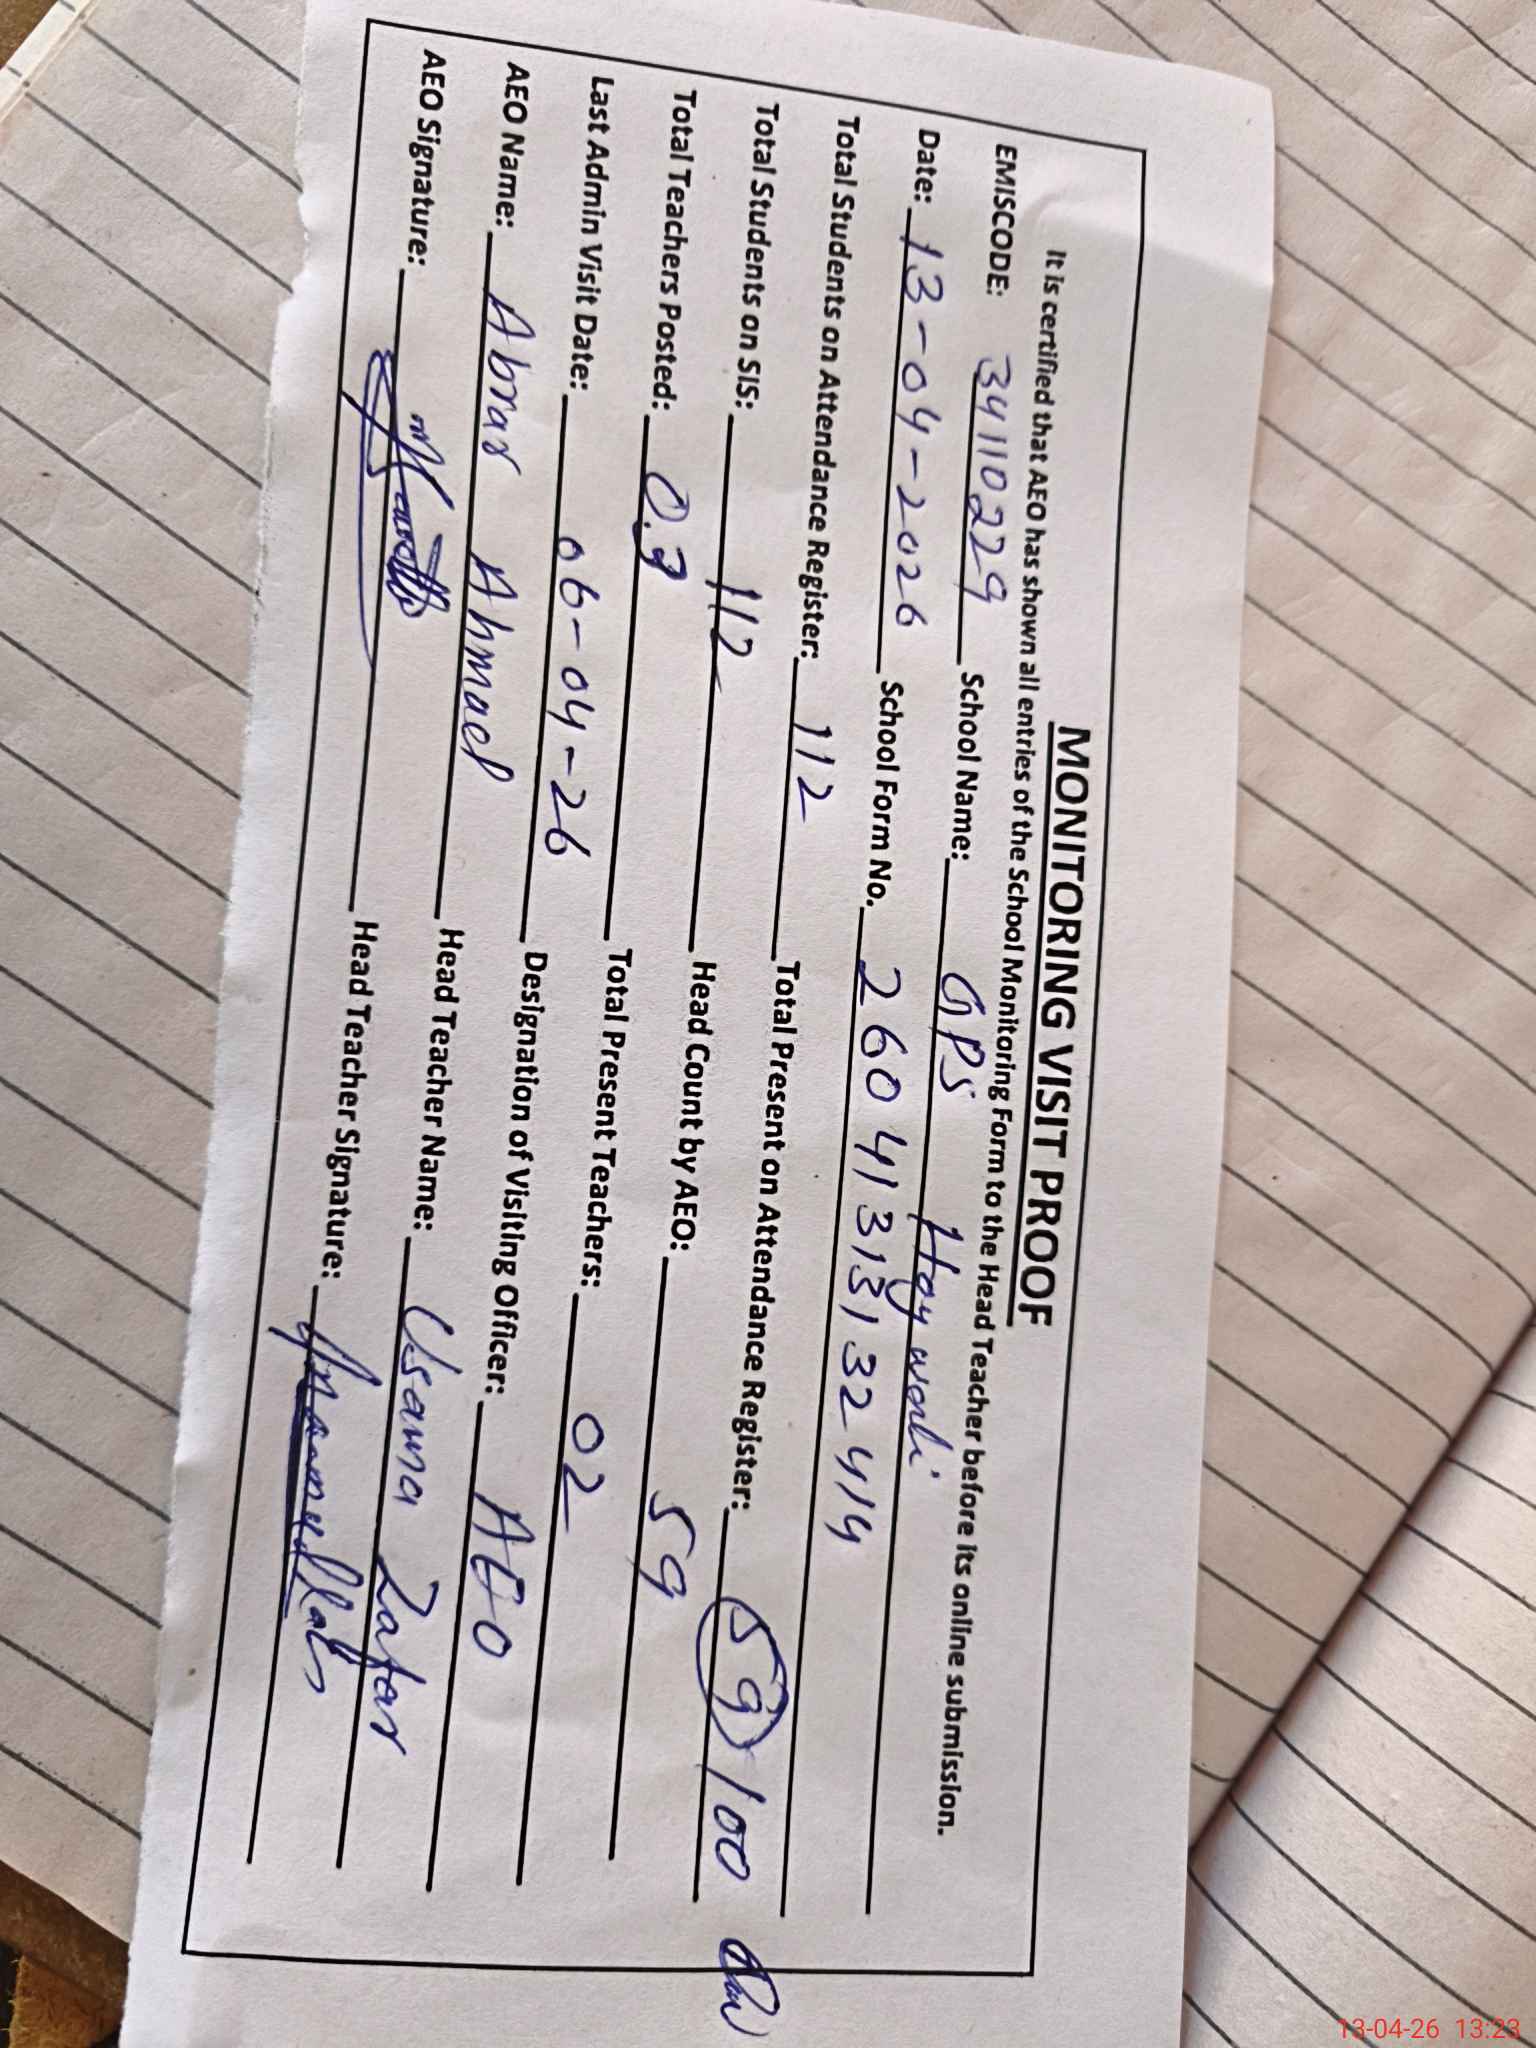 MONITORING VISIT PROOF
It is certified that AEO has shown all entries of the School Monitoring Form to the Head Teacher before its online submission.
EMISCODE: 34110229 School Name: GPS Hoy wali
Date: 13-04-2026 School Form No. 26041313132414
Total Students on Attendance Register: 112 Total Present on Attendance Register: 59 100
Total Students on SIS: 112 Head Count by AEO: 59
Total Teachers Posted: 03 Total Present Teachers: 02
Last Admin Visit Date: 06-04-26 Designation of Visiting Officer: AEO
AEO Name: Abrar Ahmad Head Teacher Name: Usama Zafar
AEO Signature: Head Teacher Signature:
13-04-26 13:23